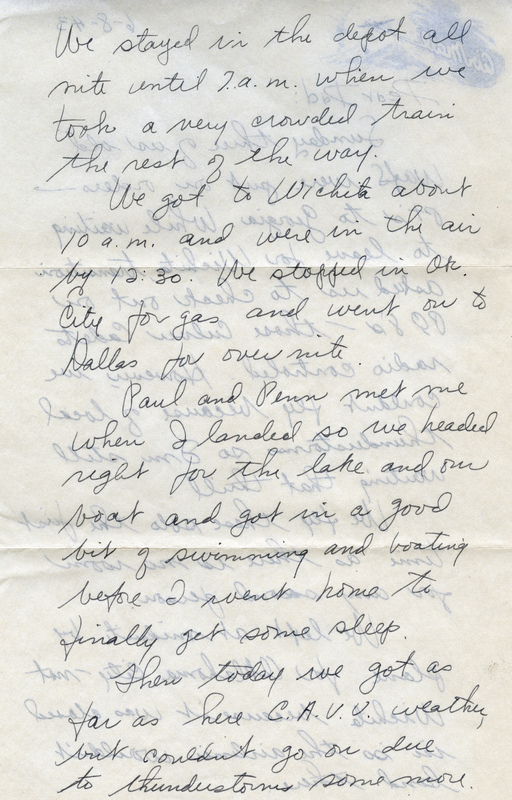 We stayed in the depot all
nite until 7 a.m. when we
took a very crowded train
the rest of the way.
We got to Wichita about
10 a.m. and were in the air
by 12:30. We stopped in Ok.
City for gas and went on to
Dallas for over nite.
Paul and Penn met me
when I landed so we headed
right for the lake and our
boat and got in a good
bit of swimming and boating
before I went home to
finally get some sleep.
Then today we got as
far as here C.A.V.U. weather,
but couldn't go on due
to thunderstorms some more.